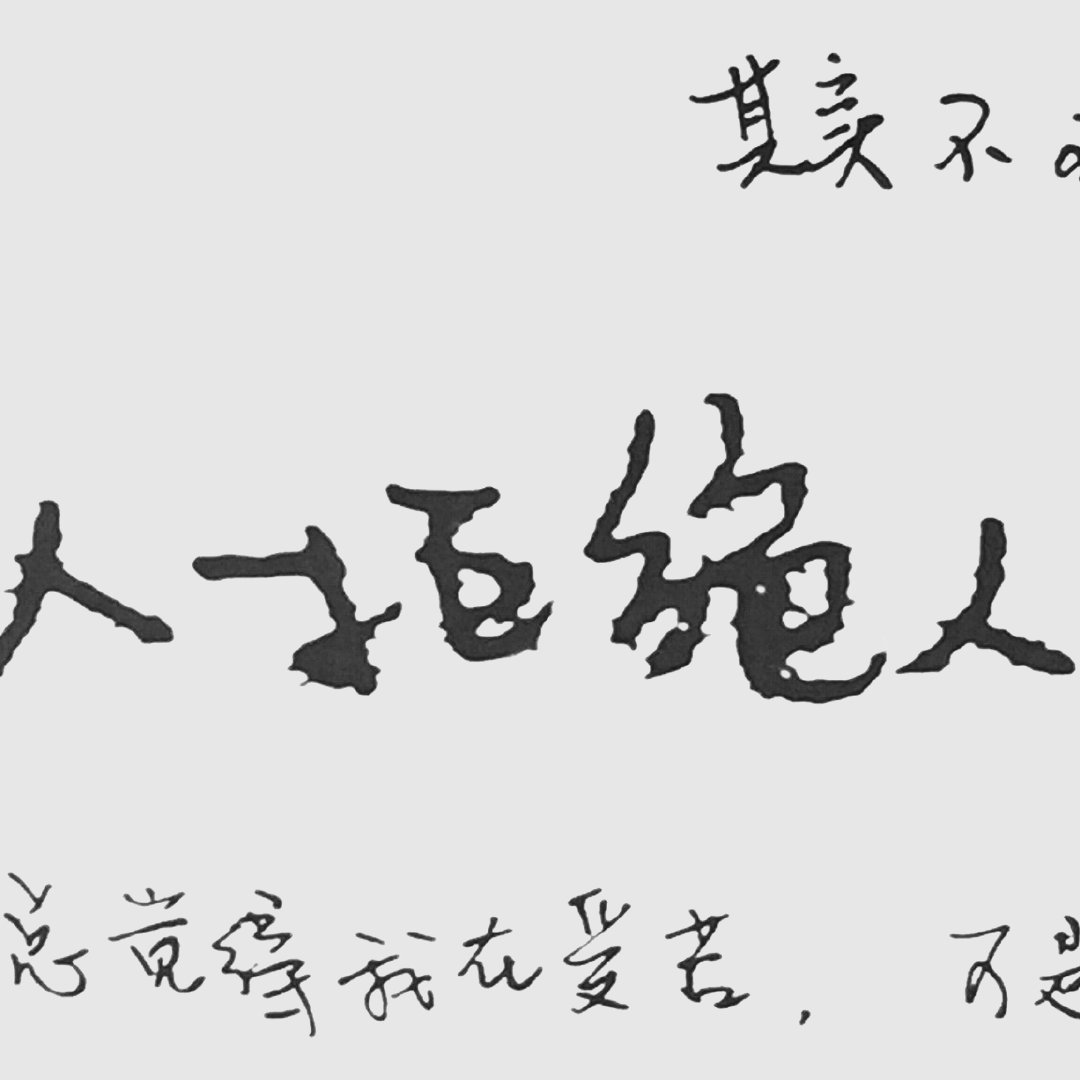 其实不
人拒绝人
总觉得我在受苦， 可是